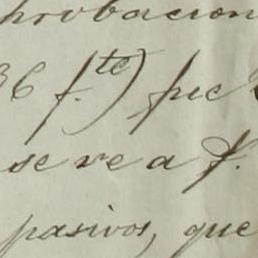 probacion
36 f.te) pec
se ve a f.
pasivos, que